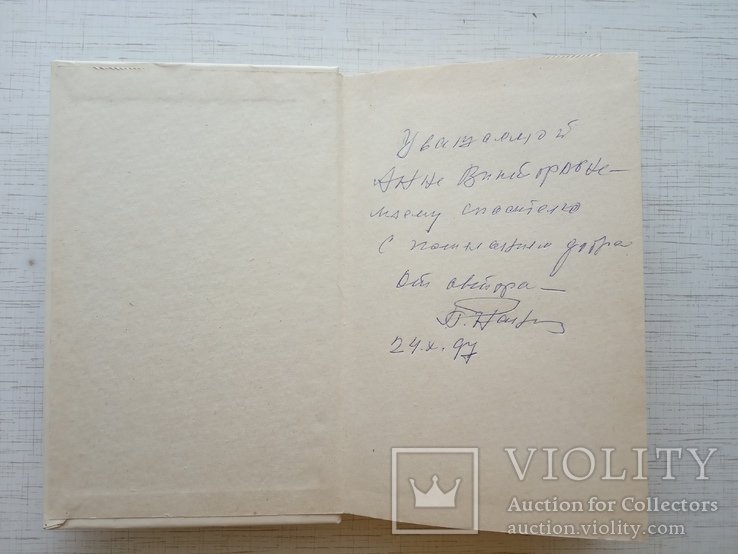 Уважаемой
Анне Викторовне –
моему спасителю
с пожеланием добра
От автора –
24.X.97
VIOLITY
Auction for Collectors
auction.violity.com